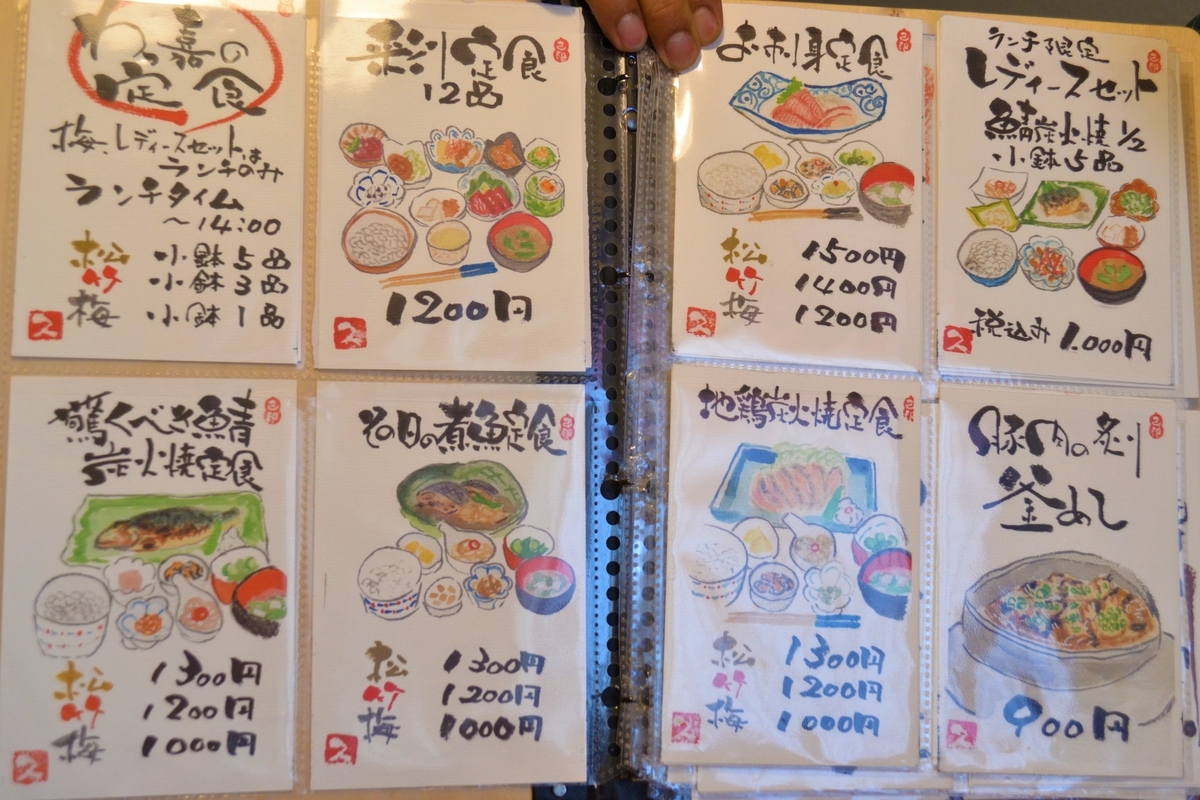 わ嘉の
定食
梅、レディースセットは
ランチのみ
ランチタイム
～14:00
松 小鉢5品
竹 小鉢3品
梅 小鉢1品
彩り定食
12品
1200円
お刺身定食
松 1500円
竹 1400円
梅 1200円
ランチ限定
レディースセット
鯖炭火焼1/2
小鉢5品
税込み 1.000円
驚くべき鯖
炭火焼定食
松 1300円
竹 1200円
梅 1000円
その日の煮魚定食
松 1300円
竹 1200円
梅 1000円
地鶏炭火焼定食
松 1300円
竹 1200円
梅 1000円
豚肉の炙り
釜めし
900円